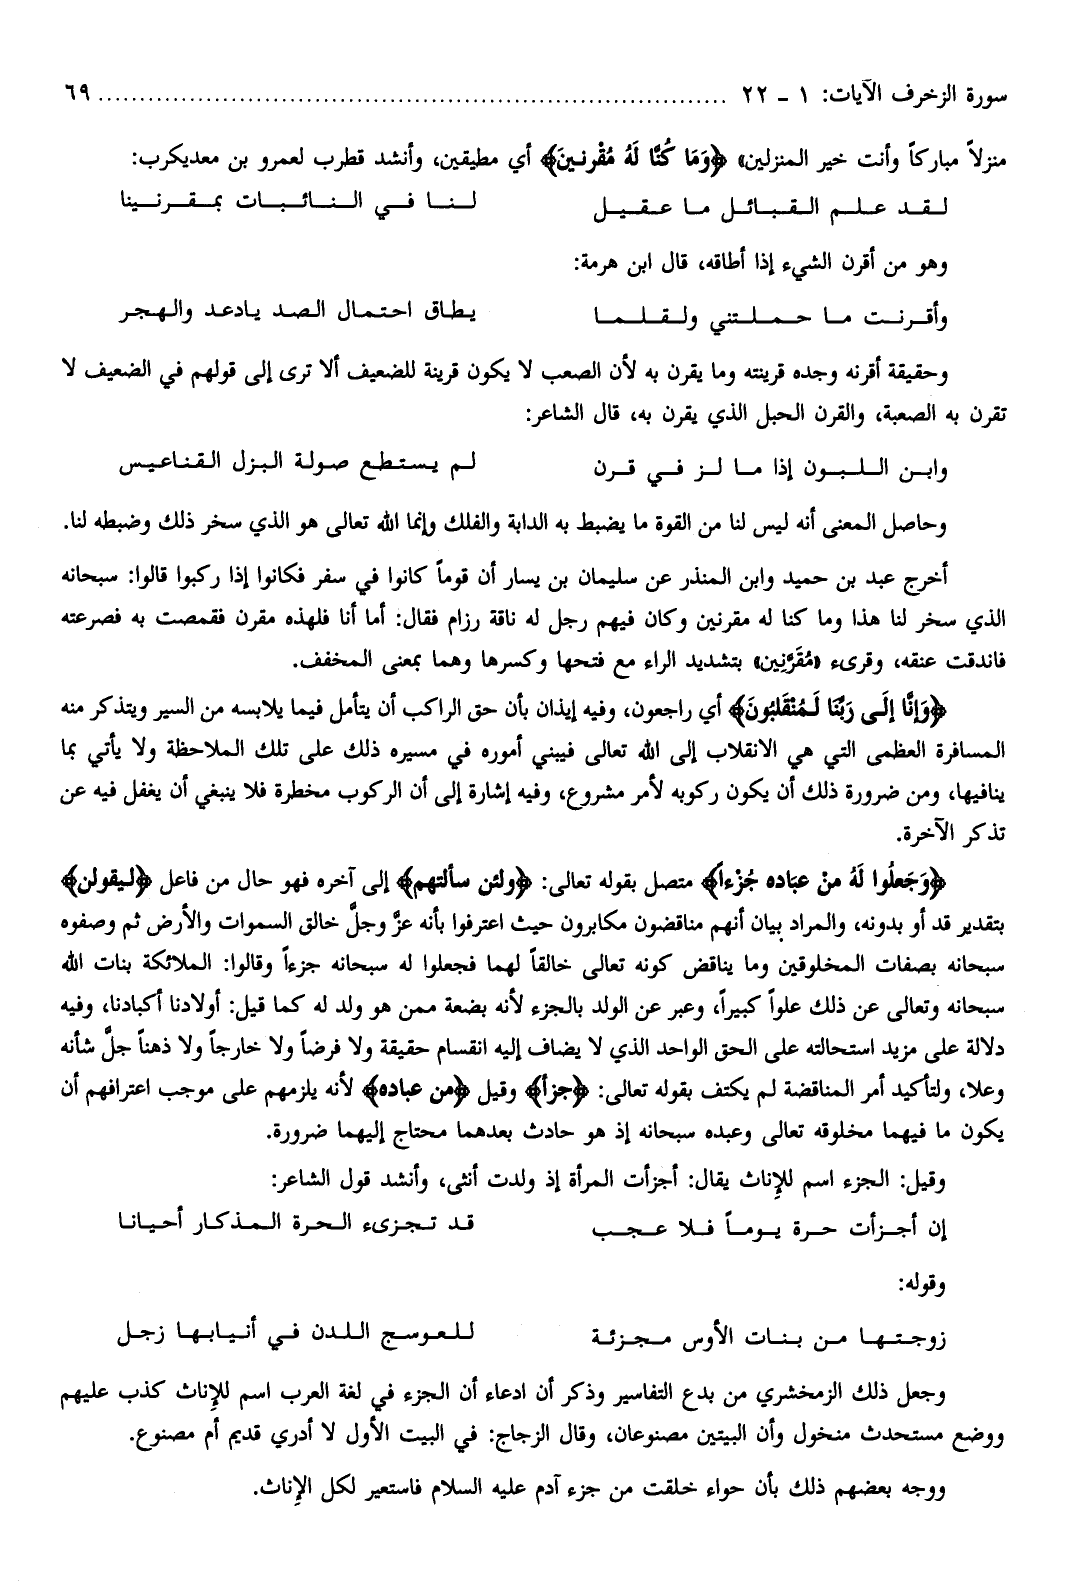 سورة الزخرف الآيات: ١ - ٢٢ ................................................................ ٦٩
منزلاً مباركاً وأنت خير المنزلين» ﴿وَمَا كُنَّا لَهُ مُقْرنينَ﴾ أي مطيقين، وأنشد قطرب لعمرو بن معديكرب:
لقد علم القبائل ما عقيل لنا في النائبات بمقرنينا
وهو من أقرن الشيء إذا أطاقه، قال ابن هرمة:
وأقرنت ما حملتني ولقلما يطاق احتمال الصد يادعد والهجر
وحقيقة أقرنه وجده قرينته وما يقرن به لأن الصعب لا يكون قرينة للضعيف ألا ترى إلى قولهم في الضعيف لا
تقرن به الصعبة، والقرن الحبل الذي يقرن به، قال الشاعر:
وابن اللبون إذا ما لز في قرن لم يستطع صولة البزل القناعيس
وحاصل المعنى أنه ليس لنا من القوة ما يضبط به الدابة والفلك وإنما الله تعالى هو الذي سخر ذلك وضبطه لنا.
أخرج عبد بن حميد وابن المنذر عن سليمان بن يسار أن قوماً كانوا في سفر فكانوا إذا ركبوا قالوا: سبحانه
الذي سخر لنا هذا وما كنا له مقرنين وكان فيهم رجل له ناقة رزام فقال: أما أنا فلهذه مقرن فقمصت به فصرعته
فاندقت عنقه، وقرىء «مُقَرَّنِين» بتشديد الراء مع فتحها وكسرها وهما بمعنى المخفف.
﴿وَإنَّا إلَى رَبِّنَا لَمُنْقَلبُونَ﴾ أي راجعون، وفيه إيذان بأن حق الراكب أن يتأمل فيما يلابسه من السير ويتذكر منه
المسافرة العظمى التي هي الانقلاب إلى الله تعالى فيبني أموره في مسيره ذلك على تلك الملاحظة ولا يأتي بما
ينافيها، ومن ضرورة ذلك أن يكون ركوبه لأمر مشروع، وفيه إشارة إلى أن الركوب مخطرة فلا ينبغي أن يغفل فيه عن
تذكر الآخرة.
﴿وَجَعلُوا لَهُ منْ عبَاده جُزْءاً﴾ متصل بقوله تعالى: ﴿ولئن سألتهم﴾ إلى آخره فهو حال من فاعل ﴿ليقولن﴾
بتقدير قد أو بدونه، والمراد بيان أنهم مناقضون مكابرون حيث اعترفوا بأنه عزَّ وجلَّ خالق السموات والأرض ثم وصفوه
سبحانه بصفات المخلوقين وما يناقض كونه تعالى خالقاً لهما فجعلوا له سبحانه جزءاً وقالوا: الملائكة بنات الله
سبحانه وتعالى عن ذلك علواً كبيراً، وعبر عن الولد بالجزء لأنه بضعة ممن هو ولد له كما قيل: أولادنا أكبادنا، وفيه
دلالة على مزيد استحالته على الحق الواحد الذي لا يضاف إليه انقسام حقيقة ولا فرضاً ولا خارجاً ولا ذهناً جلَّ شأنه
وعلا، ولتأكيد أمر المناقضة لم يكتف بقوله تعالى: ﴿جزأ﴾ وقيل ﴿من عباده﴾ لأنه يلزمهم على موجب اعترافهم أن
يكون ما فيهما مخلوقه تعالى وعبده سبحانه إذ هو حادث بعدهما محتاج إليهما ضرورة.
وقيل: الجزء اسم للإناث يقال: أجزأت المرأة إذ ولدت أنثى، وأنشد قول الشاعر:
إن أجزأت حرة يوماً فلا عجب قد تجزىء الحرة المذكار أحيانا
وقوله:
زوجتها من بنات الأوس مجزئة للعوسج اللدن في أنيابها زجل
وجعل ذلك الزمخشري من بدع التفاسير وذكر أن ادعاء أن الجزء في لغة العرب اسم للإناث كذب عليهم
ووضع مستحدث منخول وأن البيتين مصنوعان، وقال الزجاج: في البيت الأول لا أدري قديم أم مصنوع.
ووجه بعضهم ذلك بأن حواء خلقت من جزء آدم عليه السلام فاستعير لكل الإناث.